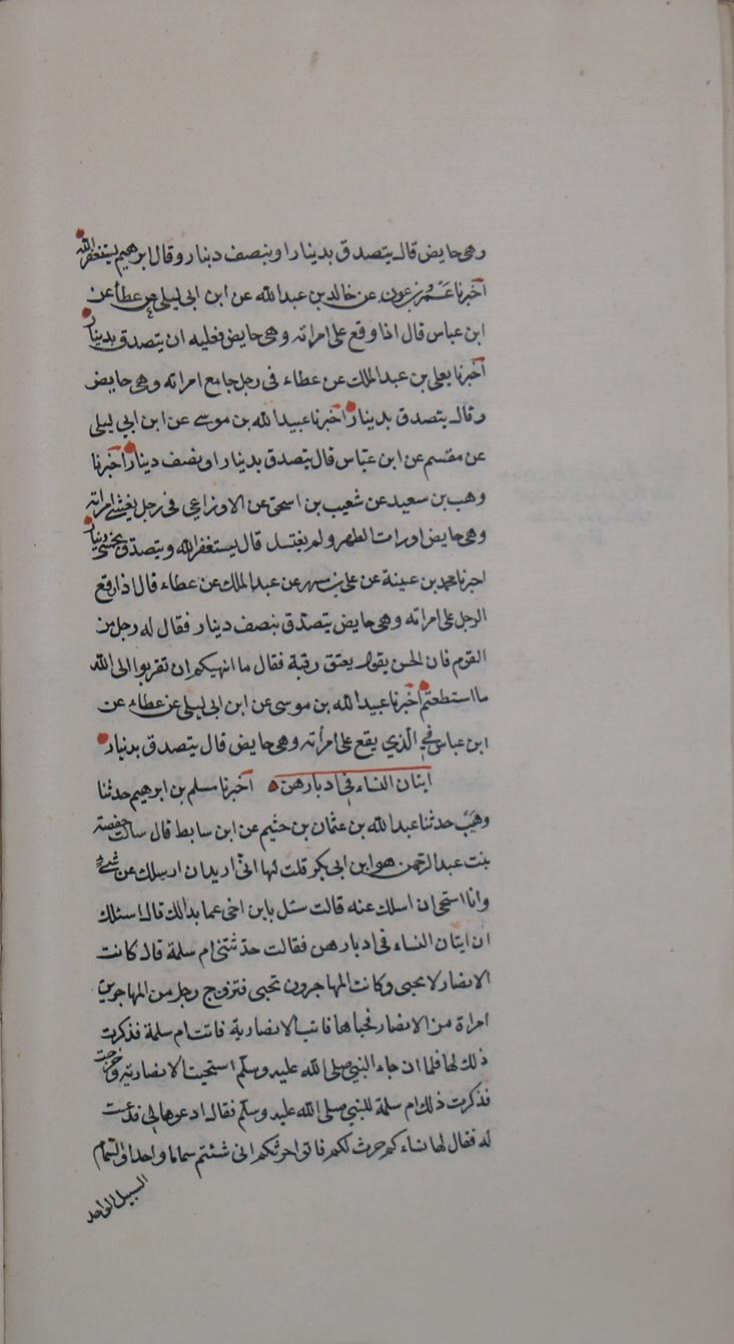 وهي حايض قال يتصدق بدينار او بنصف دينار وقال ابرهيم يستغفر الله
اخبرنا عمرو بن عون عن خالد بن عبد الله عن ابن ابي ليلى عن عطاء عن
ابن عباس قال اذا وقع على امراته وهي حايض فعليه ان يتصدق بدينار
اخبرنا يعلى بن عبد الملك عن عطاء في رجل جامع امراته وهي حايض
وقال يتصدق بدينار اخبرنا عبيد الله بن موسى عن ابن ابي ليلى
عن مقسم عن ابن عباس قال يتصدق بدينار او نصف دينار اخبرنا
وهب بن سعيد عن شعيب بن اسحق عن الاوزاعي في رجل يغشى امراته
وهي حايض او رات الطهر ولم يغتسل قال يستغفر الله ويتصدق بخمسي دينار
اخبرنا محمد بن عيينة عن علي بن مسهر عن عبد الملك عن عطاء قال اذا وقع
الرجل على امراته وهي حايض يتصدق بنصف دينار فقال له رجل من
القوم فان الحسن يقول يعتق رقبة فقال ما انهيكم ان تقربوا الى الله
ما استطعتم اخبرنا عبيد الله بن موسى عن ابن ابي ليلى عن عطاء عن
ابن عباس في الذي يقع على امرأته وهي حايض قال يتصدق بدينار
اتيان النساء في ادبارهن اخبرنا مسلم بن ابرهيم حدثنا
وهيب حدثنا عبد الله بن عثمان بن خثيم عن ابن سابط قال سالت حفصة
بنت عبد الرحمن هو ابن ابي بكر قلت لها اني اريد ان اسلك عن شيء
وانا استحي ان اسلك عنه قالت سئل يا بن اخي عما بدالك قال اسئلك
ان ايتان النساء في ادبارهن فقالت حدثتني ام سلمة قال كانت
الانصار لا تجبي وكانت المهاجرون تجبي فتزوج رجل من المهاجرين
امراة من الانصار فجباها فابت الانصارية فاتت ام سلمة فذكرت
ذلك لها فلما ان جاء النبي صلى الله عليه وسلم استحيت الانصارية وخرجت
فذكرت ذلك ام سلمة للنبي صلى الله عليه وسلم فقال ادعوها لي فدعيت
له فقال لها نساءكم حرث لكم فاتوا حرثكم انى شئتم سماما واحدا والسمام
السبيل الواحد